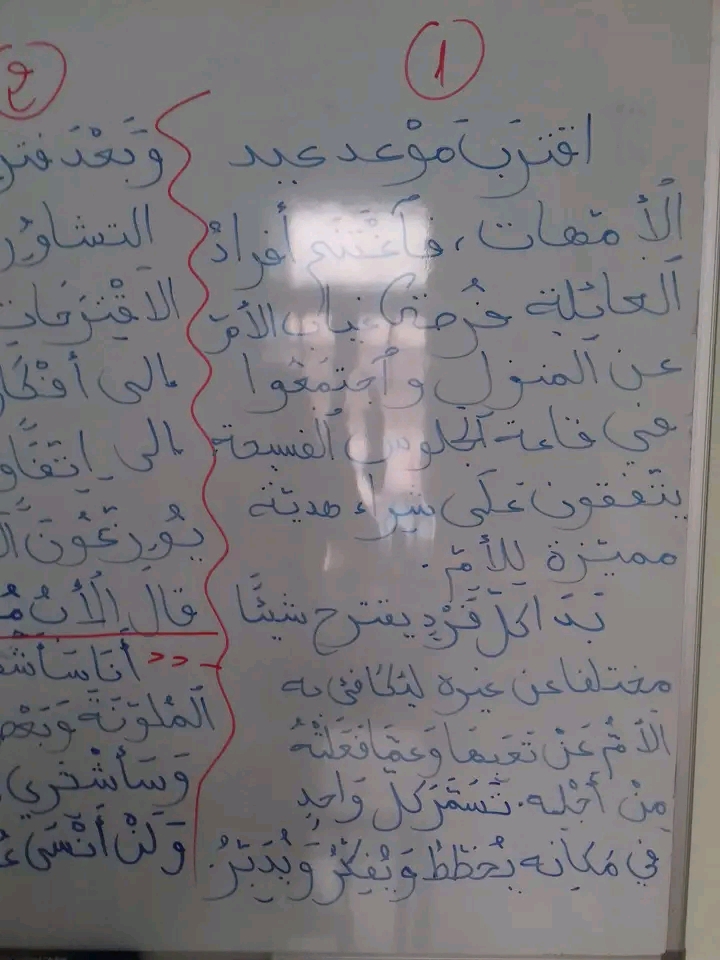 ١
اقترَبَ مَوْعد عيد
ٱلْأمّهات، فٱغْتَنم أفرادُ
ٱلعائلة فُرصة غياب الأمّ
عن ٱلمنزل وٱجتمَعُوا
في قاعة ٱلجلوس ٱلفسيحة
يتّفقون عَلَى شراء هديّة
مميّزة لِلأمّ.
بَدَا كلّ فَرْدٍ يقترح شيئًا
مختلفا عن غيره ليُكافئ به
الأمُّ عَنْ تَعَبِهَا وَعمَّا فَعَلَتْهُ
مِنْ أَجْلِه. تَسَمَّرَ كلّ وَاحِدٍ
في مَكانه يُخطّطُ وَيُفكِّرُ وَيُدَبِّرُ
٢
وَبَعْدَ
التشاوُر
إلى
إلى
قال ٱلْأبُ
>> أَنَا
ٱلْمُلوَّنَة وَبَعْض
وَسَأَشْتري
وَلَنْ أَنْسَى